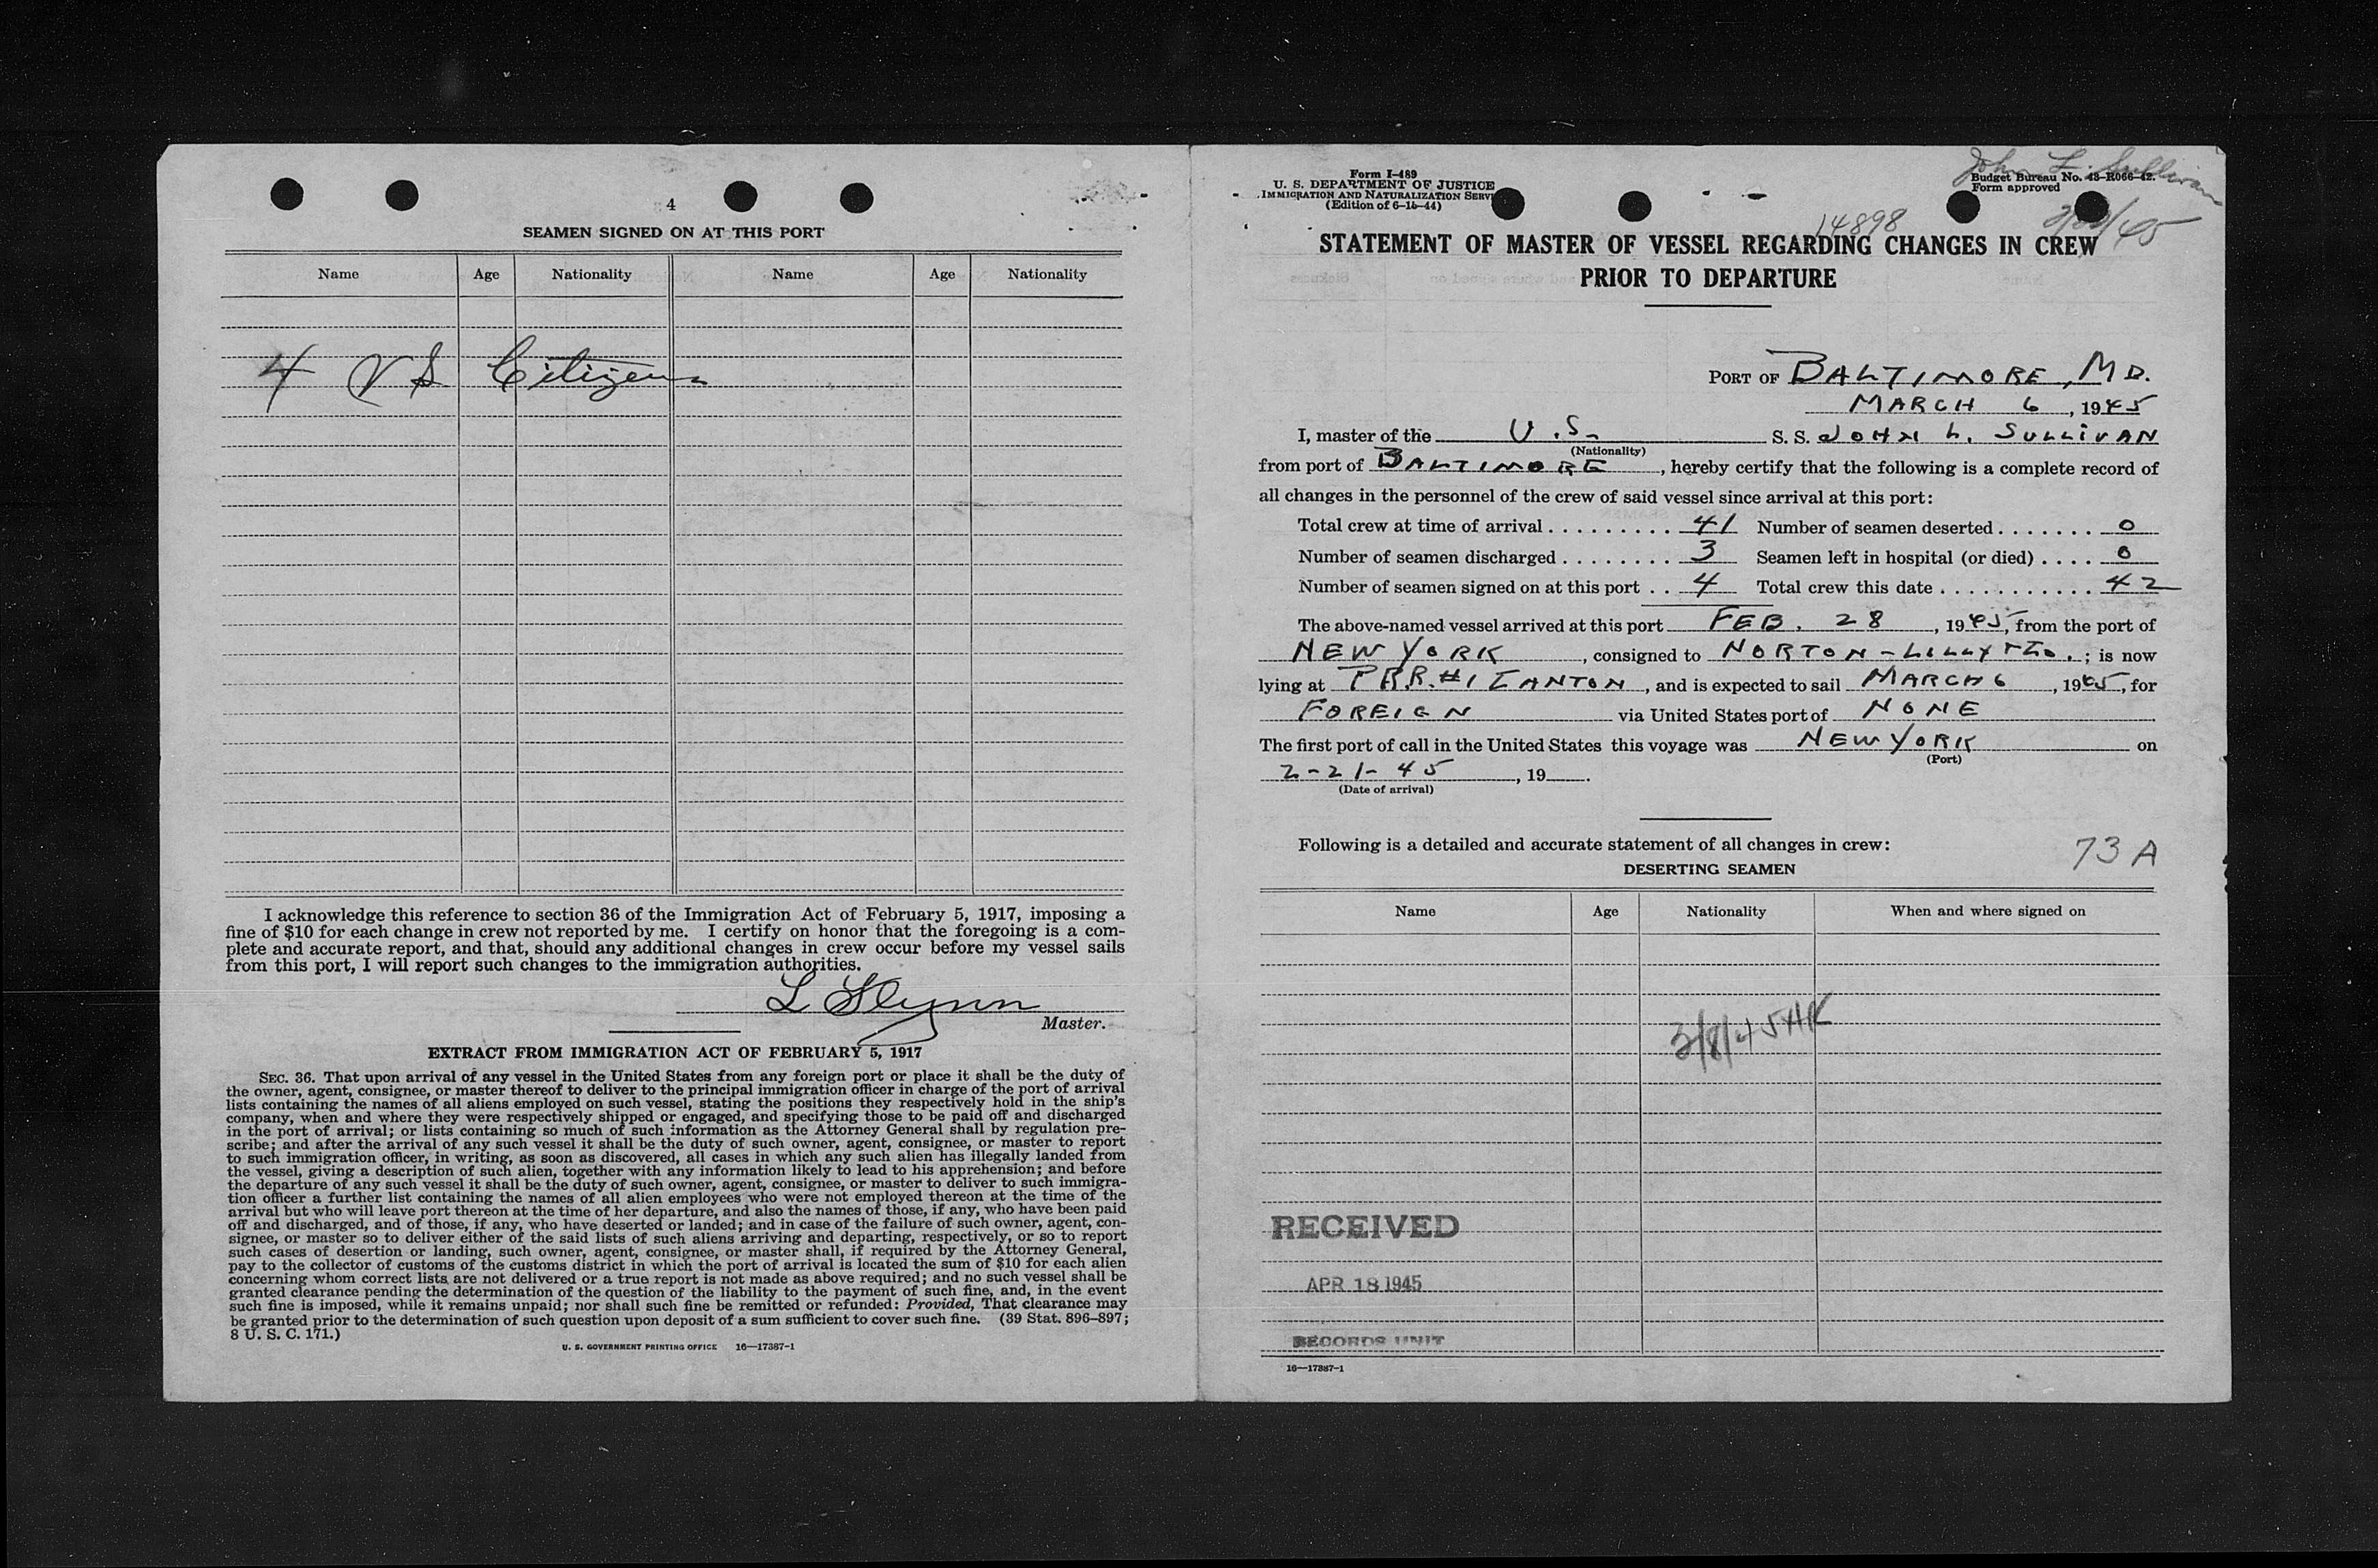 4
SEAMEN SIGNED ON AT THIS PORT
Name Age Nationality Name Age Nationality
4 US Citizens
I acknowledge this reference to section 36 of the Immigration Act of February 5, 1917, imposing a
fine of $10 for each change in crew not reported by me. I certify on honor that the foregoing is a com-
plete and accurate report, and that, should any additional changes in crew occur before my vessel sails
from this port, I will report such changes to the immigration authorities.
L Flynn
Master.
EXTRACT FROM IMMIGRATION ACT OF FEBRUARY 5, 1917
SEC. 36. That upon arrival of any vessel in the United States from any foreign port or place it shall be the duty of
the owner, agent, consignee, or master thereof to deliver to the principal immigration officer in charge of the port of arrival
lists containing the names of all aliens employed on such vessel, stating the positions they respectively hold in the ship's
company, when and where they were respectively shipped or engaged, and specifying those to be paid off and discharged
in the port of arrival; or lists containing so much of such information as the Attorney General shall by regulation pre-
scribe; and after the arrival of any such vessel it shall be the duty of such owner, agent, consignee, or master to report
to such immigration officer, in writing, as soon as discovered, all cases in which any such alien has illegally landed from
the vessel, giving a description of such alien, together with any information likely to lead to his apprehension; and before
the departure of any such vessel it shall be the duty of such owner, agent, consignee, or master to deliver to such immigra-
tion officer a further list containing the names of all alien employees who were not employed thereon at the time of the
arrival but who will leave port thereon at the time of her departure, and also the names of those, if any, who have been paid
off and discharged, and of those, if any, who have deserted or landed; and in case of the failure of such owner, agent, con-
signee, or master so to deliver either of the said lists of such aliens arriving and departing, respectively, or so to report
such cases of desertion or landing, such owner, agent, consignee, or master shall, if required by the Attorney General,
pay to the collector of customs of the customs district in which the port of arrival is located the sum of $10 for each alien
concerning whom correct lists are not delivered or a true report is not made as above required; and no such vessel shall be
granted clearance pending the determination of the question of the liability to the payment of such fine, and, in the event
such fine is imposed, while it remains unpaid; nor shall such fine be remitted or refunded: Provided, That clearance may
be granted prior to the determination of such question upon deposit of a sum sufficient to cover such fine. (39 Stat. 896–897;
8 U. S. C. 171.)
U. S. GOVERNMENT PRINTING OFFICE 16—17387-1
Form I-489
U. S. DEPARTMENT OF JUSTICE
IMMIGRATION AND NATURALIZATION SERV
(Edition of 6-15-44)
John L. Sullivan
Budget Bureau No. 43-R066-42.
Form approved
14898
STATEMENT OF MASTER OF VESSEL REGARDING CHANGES IN CREW
PRIOR TO DEPARTURE
PORT OF BALTIMORE, MD.
MARCH 6, 1945
I, master of the U.S. S. S. JOHN L. SULLIVAN
(Nationality)
from port of BALTIMORE, hereby certify that the following is a complete record of
all changes in the personnel of the crew of said vessel since arrival at this port:
Total crew at time of arrival .......... 41 Number of seamen deserted ....... 0
Number of seamen discharged ........ 3 Seamen left in hospital (or died) .... 0
Number of seamen signed on at this port .. 4 Total crew this date ........... 42
The above-named vessel arrived at this port FEB. 28, 1945, from the port of
NEW YORK, consigned to NORTON-LILLY + CO.; is now
lying at P.R.R. #1 CANTON, and is expected to sail MARCH 6, 1945, for
FOREIGN via United States port of NONE
The first port of call in the United States this voyage was NEW YORK on
(Port)
2-21-45, 19 .
(Date of arrival)
Following is a detailed and accurate statement of all changes in crew:
73 A
DESERTING SEAMEN
Name Age Nationality When and where signed on
3/8/45 HK
RECEIVED
APR 18 1945
RECORDS UNIT
16—17387-1